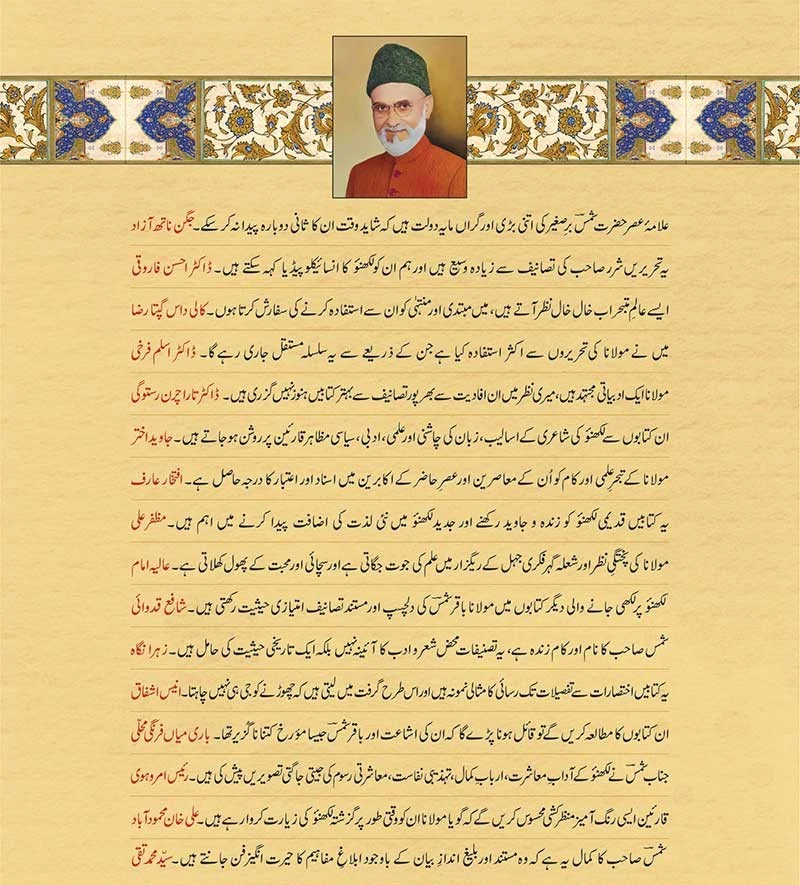 علامۂ عصر حضرت شمسؔ برِصغیر کی اتنی بڑی اور گراں مایہ دولت ہیں کہ شاید وقت ان کا ثانی دوبارہ پیدا نہ کر سکے۔ جگن ناتھ آزاد
یہ تحریریں شرر صاحب کی تصانیف سے زیادہ وسیع ہیں اور ہم ان کو لکھنؤ کا انسائیکلو پیڈیا کہہ سکتے ہیں۔ ڈاکٹر احسن فاروقی
ایسے عالمِ متبحر اب خال خال نظر آتے ہیں، میں مبتدی اور منتہی کو ان سے استفادہ کرنے کی سفارش کرتا ہوں۔ کالی داس گپتا رضا
میں نے مولانا کی تحریروں سے اکثر استفادہ کیا ہے جن کے ذریعے سے یہ سلسلہ مستقل جاری رہے گا۔ ڈاکٹر اسلم فرخی
مولانا ایک ادبیاتی مجتہد ہیں، میری نظر میں ان افادیت سے بھرپور تصانیف سے بہتر کتابیں ہنوز نہیں گزری ہیں۔ ڈاکٹر تارا چرن رستوگی
ان کتابوں سے لکھنؤ کی شاعری کے اسالیب، زبان کی چاشنی اور علمی، ادبی، سیاسی مظاہر قارئین پر روشن ہو جاتے ہیں۔ جاوید اختر
مولانا کے تبحرِ علمی اور کام کو اُن کے معاصرین اور عصرِ حاضر کے اکابرین میں اسناد اور اعتبار کا درجہ حاصل ہے۔ افتخار عارف
یہ کتابیں قدیمی لکھنؤ کو زندہ و جاوید رکھنے اور جدید لکھنؤ میں نئی لذت کی اضافت پیدا کرنے میں اہم ہیں۔ مظفر علی
مولانا کی پختگیِ نظر اور شعلہ گہر فکری جہل کے ریگزار میں علم کی جوت جگاتی ہے اور سچائی اور محبت کے پھول کھلاتی ہے۔ عالیہ امام
لکھنؤ پر لکھی جانے والی دیگر کتابوں میں مولانا باقر شمسؔ کی دلچسپ اور مستند تصانیف امتیازی حیثیت رکھتی ہیں۔ شافع قدوائی
شمس صاحب کا نام اور کام زندہ ہے، یہ تصنیفات محض شعر و ادب کا آئینہ نہیں بلکہ ایک تاریخی حیثیت کی حامل ہیں۔ زہرا نگاہ
یہ کتابیں اختصارات سے تفصیلات تک رسائی کا مثالی نمونہ ہیں اور اس طرح گرفت میں لیتی ہیں کہ چھوڑنے کو جی ہی نہیں چاہتا۔ انیس اشفاق
ان کتابوں کا مطالعہ کریں گے تو قائل ہونا پڑے گا کہ ان کی اشاعت اور باقر شمسؔ جیسا مؤرخ کتنا ناگزیر تھا۔ باری میاں فرنگی محلّی
جناب شمسؔ نے لکھنؤ کے آدابِ معاشرت، اربابِ کمال، تہذیبی نفاست، معاشرتی رسوم کی جیتی جاگتی تصویریں پیش کی ہیں۔ رئیس امروہوی
قارئین ایسی رنگ آمیز منظر کشی محسوس کریں گے کہ گویا مولانا ان کو وقتی طور پر گزشتہ لکھنؤ کی زیارت کروا رہے ہیں۔ علی خان محمود آباد
شمسؔ صاحب کا کمال یہ ہے کہ وہ مستند اور بلیغ اندازِ بیان کے باوجود ابلاغِ مفاہیم کا حیرت انگیز فن جانتے ہیں۔ سیّد محمد تقی